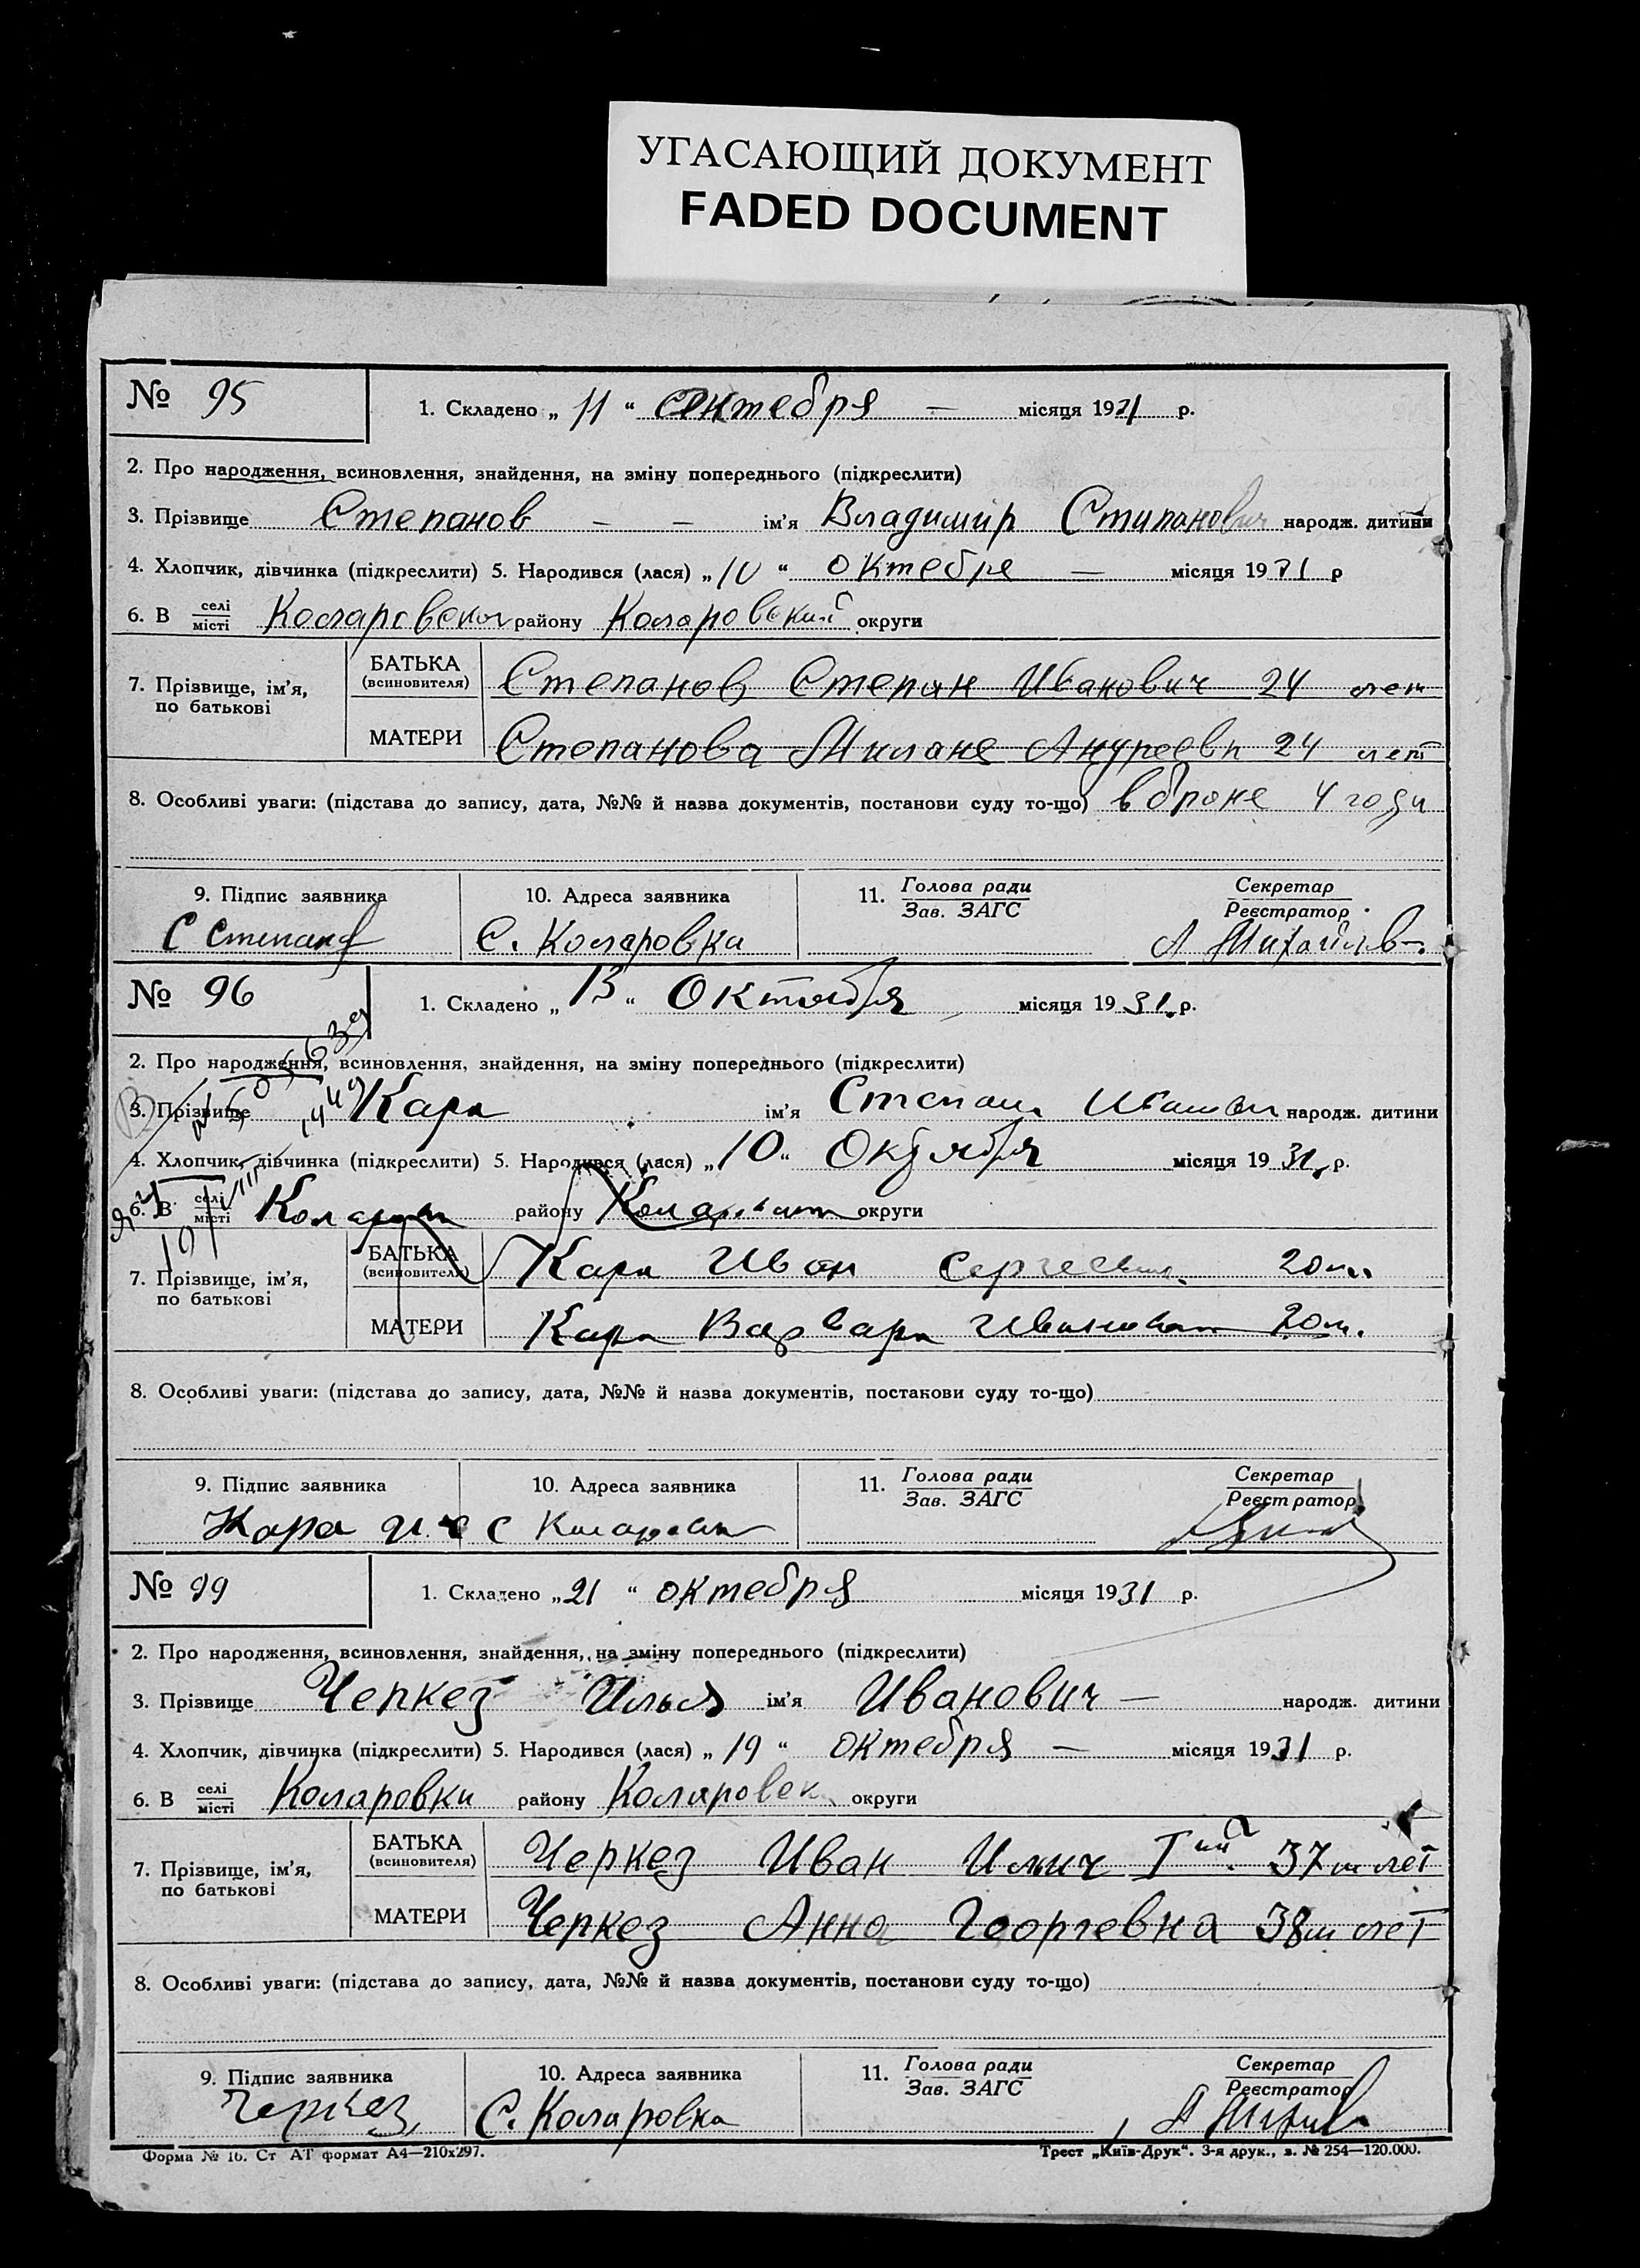 УГАСАЮЩИЙ ДОКУМЕНТ
FADED DOCUMENT
№ 95
1. Складено „ 11 “ октебря — місяця 1931 р.
2. Про народження, всиновлення, знайдення, на зміну попереднього (підкреслити)
3. Прізвище Степанов — — ім'я Владимир Стипанович народж. дитини
4. Хлопчик, дівчинка (підкреслити) 5. Народився (лася) „ 10 “ октебре — місяця 1931 р
6. В селі/місті району Коларовский округи
7. Прізвище, ім'я, по батькові
БАТЬКА (всиновителя) Степанов Степан Иванович 24 лет
МАТЕРИ Степанова Андреевн 24 лет
8. Особливі уваги: (підстава до запису, дата, №№ й назва документів, постанови суду то-що) в браке 4 года
9. Підпис заявника
10. Адреса заявника
11. Голова ради / Зав. ЗАГС
Секретар / Реєстратор
С Степанов С. Коларовка
№ 96
1. Складено „ 13 “ Октября місяця 1931. р.
2. Про народження, всиновлення, знайдення, на зміну попереднього (підкреслити)
3. Прізвище Кара ім'я Степан Иванови народж. дитини
4. Хлопчик, дівчинка (підкреслити) 5. Народився (лася) „ 10 “ Октября місяця 1931. р.
6. В селі/місті району округи
7. Прізвище, ім'я, по батькові
БАТЬКА (всиновителя) Кара Иван Сергеевич. 20
МАТЕРИ Кара Варвара Ивановна 20 л.
8. Особливі уваги: (підстава до запису, дата, №№ й назва документів, постанови суду то-що)
9. Підпис заявника
10. Адреса заявника
11. Голова ради / Зав. ЗАГС
Секретар / Реєстратор
Кара с Коларовка
№ 99
1. Складено „ 21 “ октебря місяця 1931 р.
2. Про народження, всиновлення, знайдення, на зміну попереднього (підкреслити)
3. Прізвище Черкез Илья ім'я Иванович — народж. дитини
4. Хлопчик, дівчинка (підкреслити) 5. Народився (лася) „ 19 “ октебря — місяця 1931 р.
6. В селі/місті Коларовки району Коларовск округи
7. Прізвище, ім'я, по батькові
БАТЬКА (всиновителя) Черкез Иван Илич 37 лет
МАТЕРИ Черкез Анна Георгевна 38 лет
8. Особливі уваги: (підстава до запису, дата, №№ й назва документів, постанови суду то-що)
9. Підпис заявника
10. Адреса заявника
11. Голова ради / Зав. ЗАГС
Секретар / Реєстратор
Черкез С. Коларовка
Форма № 16. Ст АТ формат А4—210х297.
Трест „Київ-Друк“. 3-я друк., з. № 254—120.000.